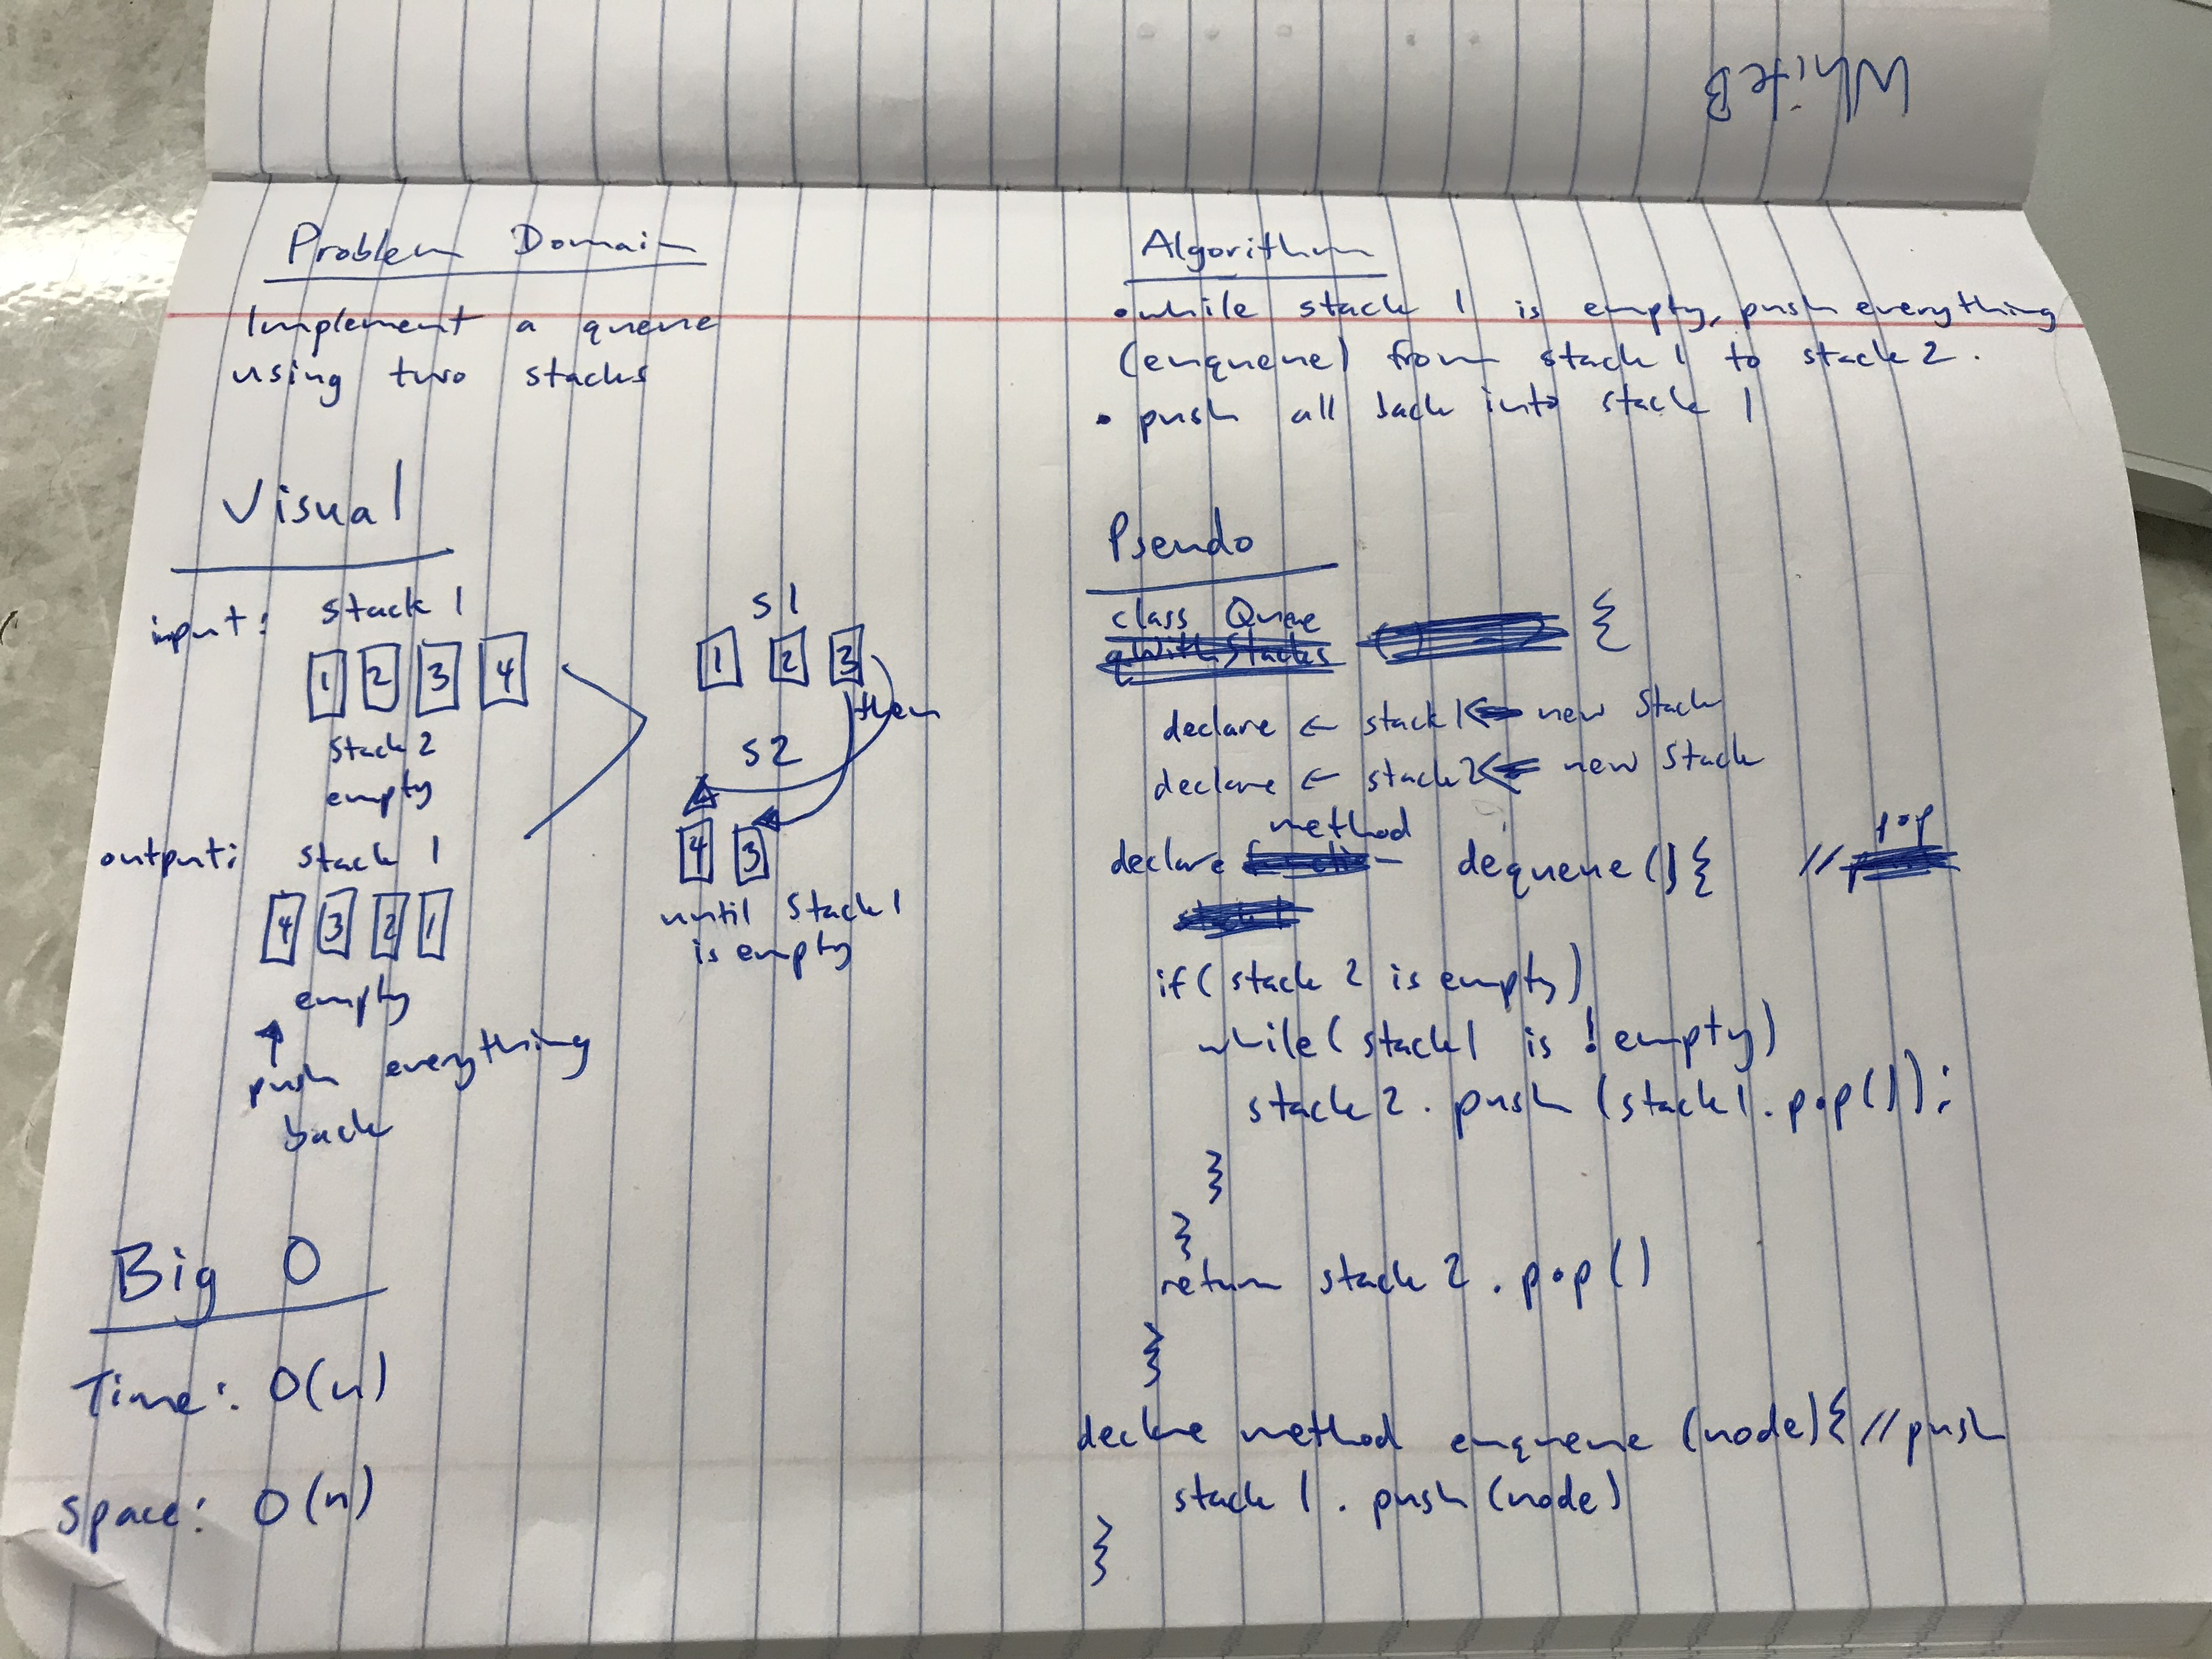 Problem Domain
Implement a queue
using two stacks
Visual
input: stack 1
1 2 3 4
stack 2
empty
output: stack 1
4 3 2 1
empty
push everything
back
S1
1 2 3
then
S2
4 3
until stack 1
is empty
Big O
Time: O(n)
Space: O(n)
Algorithm
• while stack 1 is empty, push everything
(enqueue) from stack 1 to stack 2.
• push all back into stack 1
Pseudo
class Quee {
declare ← stack1 ← new Stack
declare ← stack2 ← new Stack
declare method dequeue(){ // pop
if (stack 2 is empty)
while (stack1 is !empty)
stack2.push (stack1.pop());
}
}
return stack 2.pop()
}
declare method enqueue (node){ // push
stack 1.push(node)
}